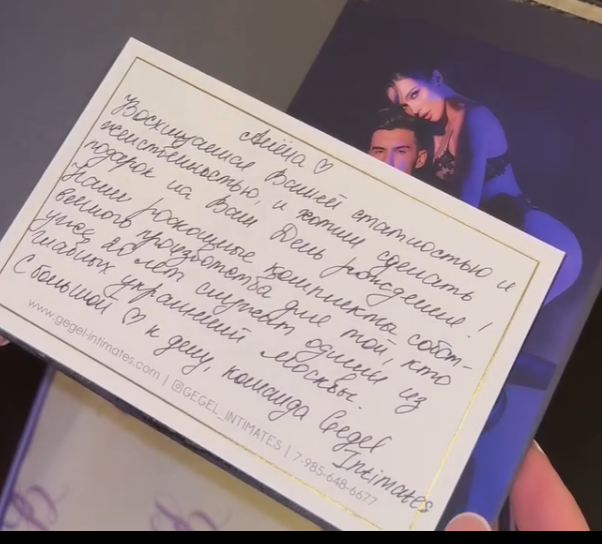 Алёна ♡
Восхищаемся Вашей статностью и
женственностью, и хотим сделать
подарок на Ваш День рождения!
Наши роскошные комплекты собст-
венного производства для той, кто
уже 20 лет служит одним из
главных украшений Москвы.
С большой ♡ к делу, команда Gegel
Intimates
www.gegel-intimates.com | @GEGEL_INTIMATES | 7-985-648-6677